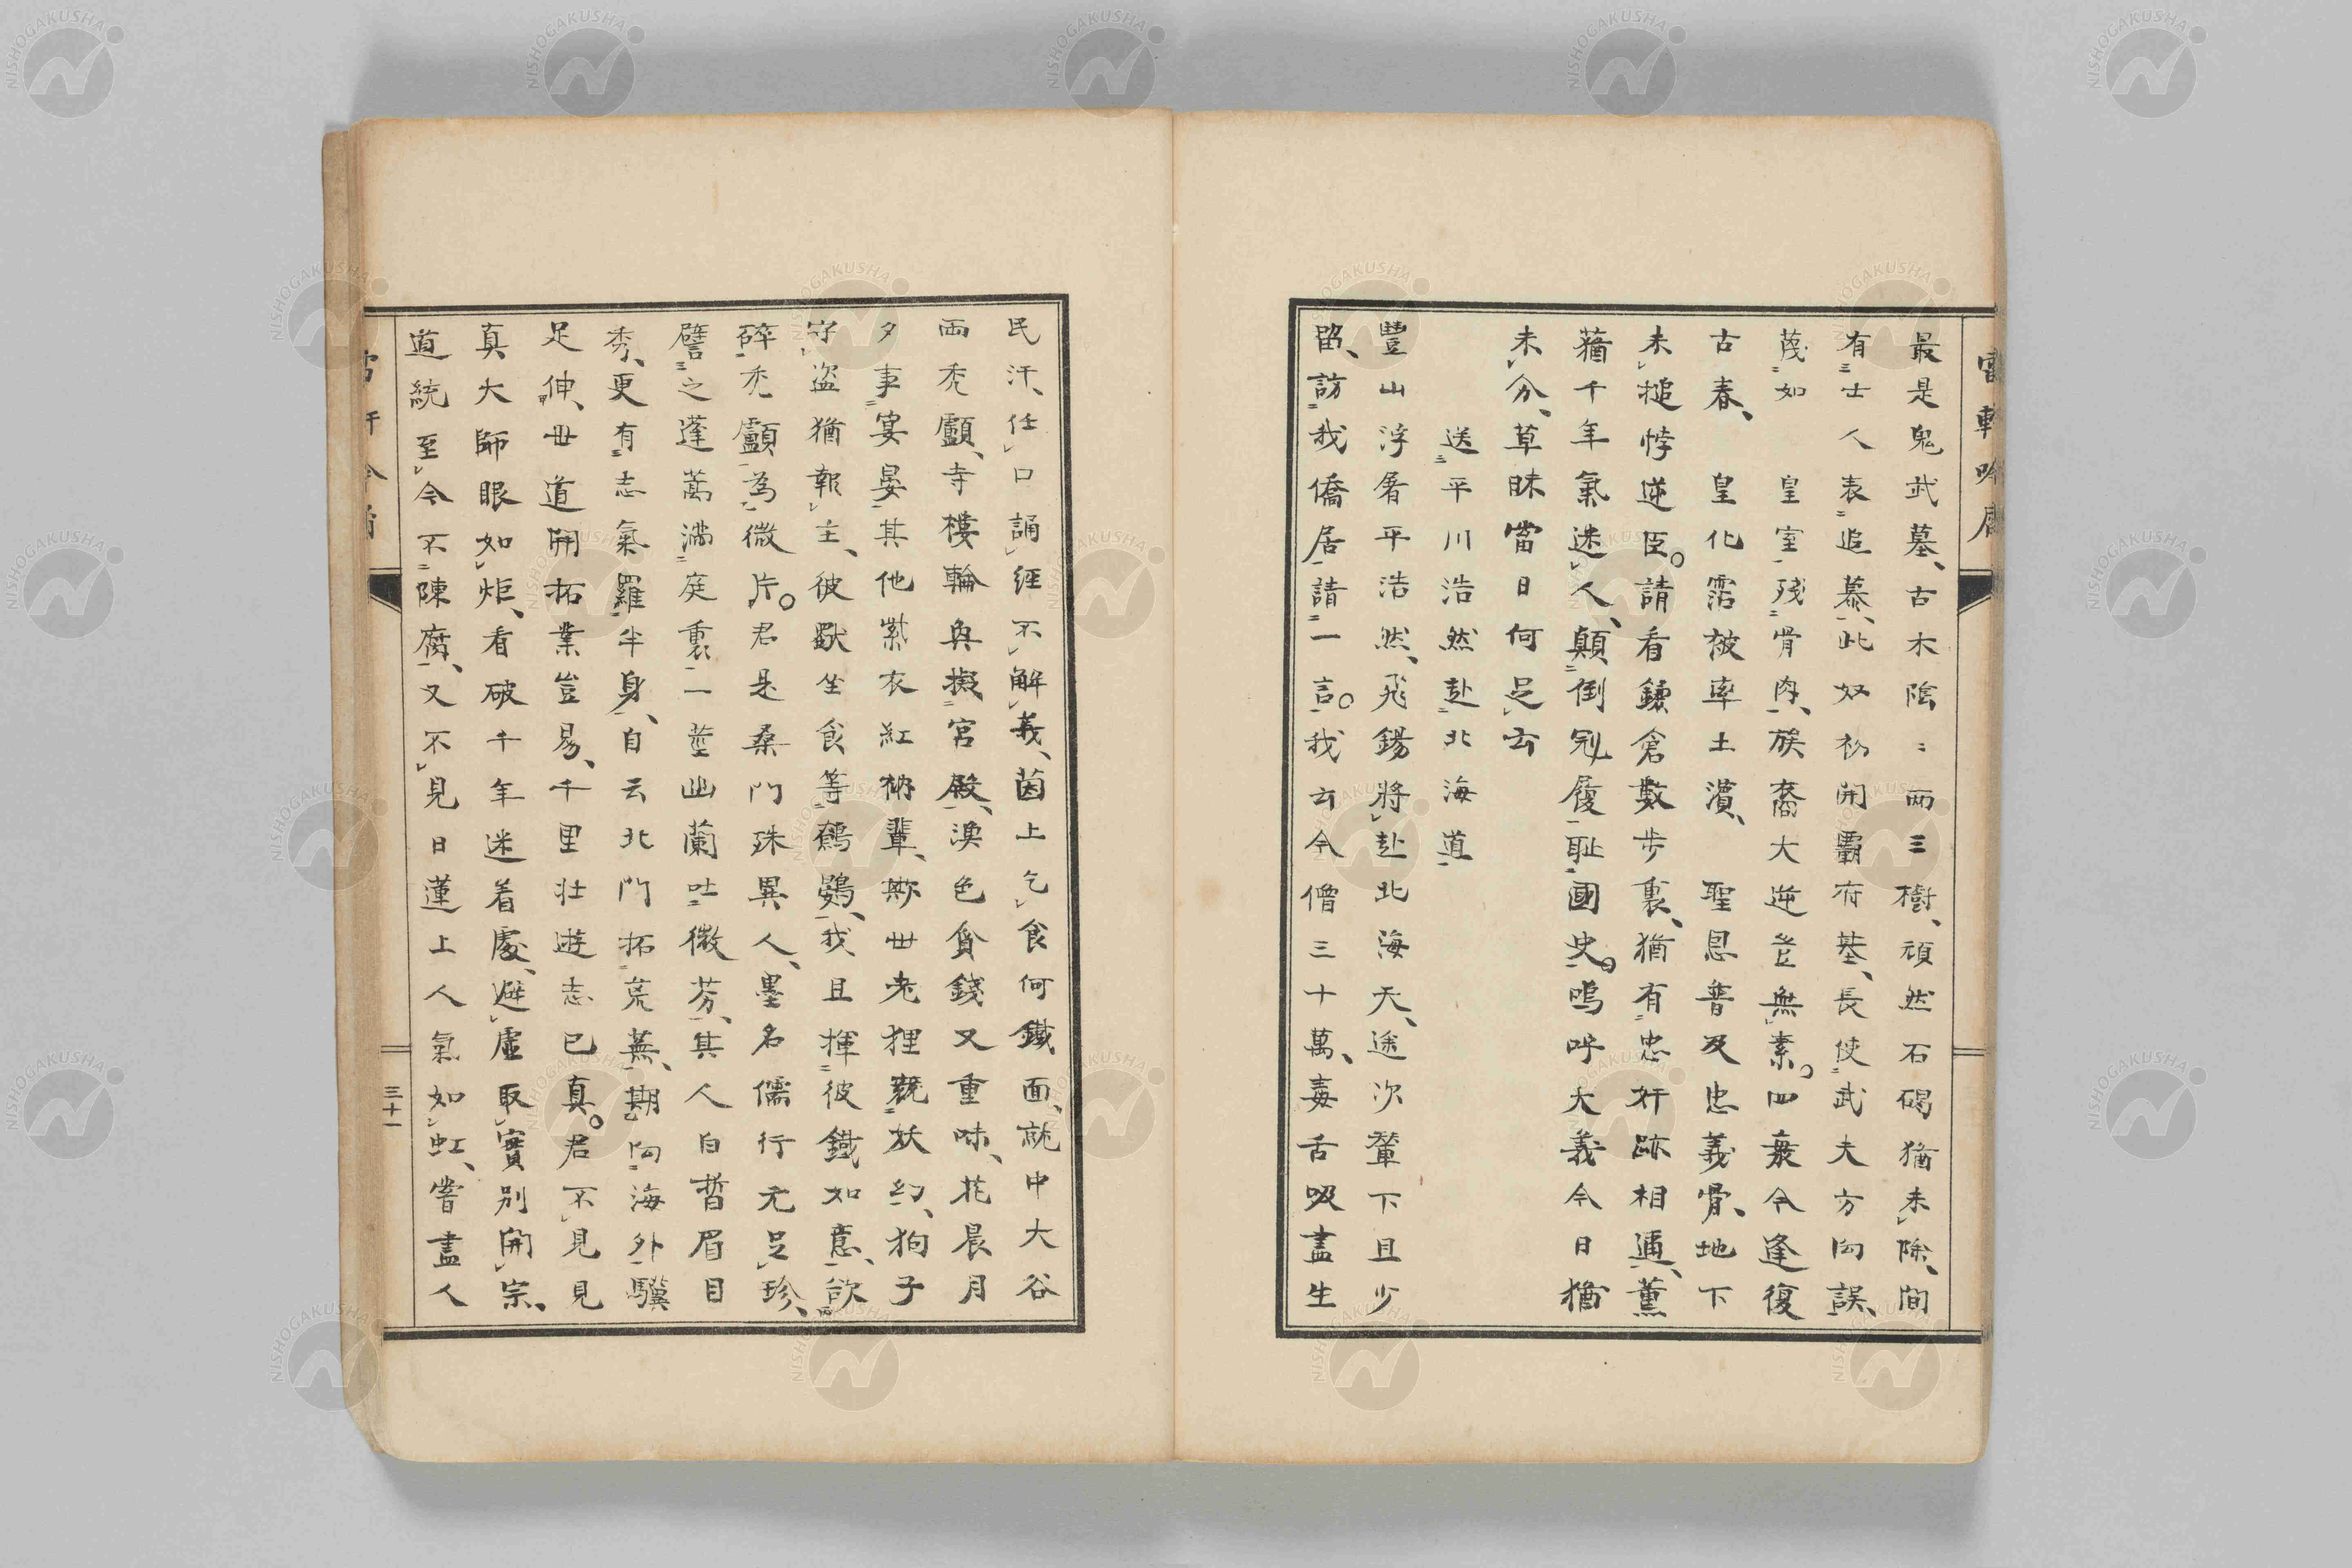 最是鬼武墓、古木陰〻兩三樹、頑然石碣猶未除、間
有士人表追慕、此奴初開霸府基、長使武夫方向誤、
蔑如　皇室殘骨肉、族裔大逆豈無素。四衰今逢復
古春、　皇化霑被率土濱、　聖恩普及忠義骨、地下
未搥悖逆臣。請看鎌倉數步裏、猶有忠奸跡相通、薰
蕕千年氣迷人、顛倒冠履耻國史。嗚呼大義今日猶
未分、草昧當日何足云
送平川浩然赴北海道
豐山浮屠平浩然、飛錫將赴北海天、途次輦下且少
留、訪我僑居請一言。我云今僧三十萬、毒舌吸盡生
民汗、任口誦經不解義、茵上乞食何鐵面、就中大谷
兩禿顱、寺樓輪奐擬宮殿、漁色貪錢又重味、花晨月
夕事宴晏、其他紫衣紅衲輩、欺世老狸競妖幻、狗子
守盜猶報主、彼歠坐食等鶴鷃、我且揮彼鐵如意、欲
碎禿顱為微片。君是桑門殊異人、墨名儒行尤足珍、
譬之蓬蒿滿庭裏一莖幽蘭吐微芳、其人白晳眉目
秀、更有志氣羅半身、自云北門拓荒蕪、期向海外驥
足伸、世道開拓業豈易、千里壯遊志已真。君不見見
真大師眼如炬、看破千年迷着處、避虛取實別開宗、
道統至今不陳腐、又不見日蓮上人氣如虹、嘗盡人
三十一